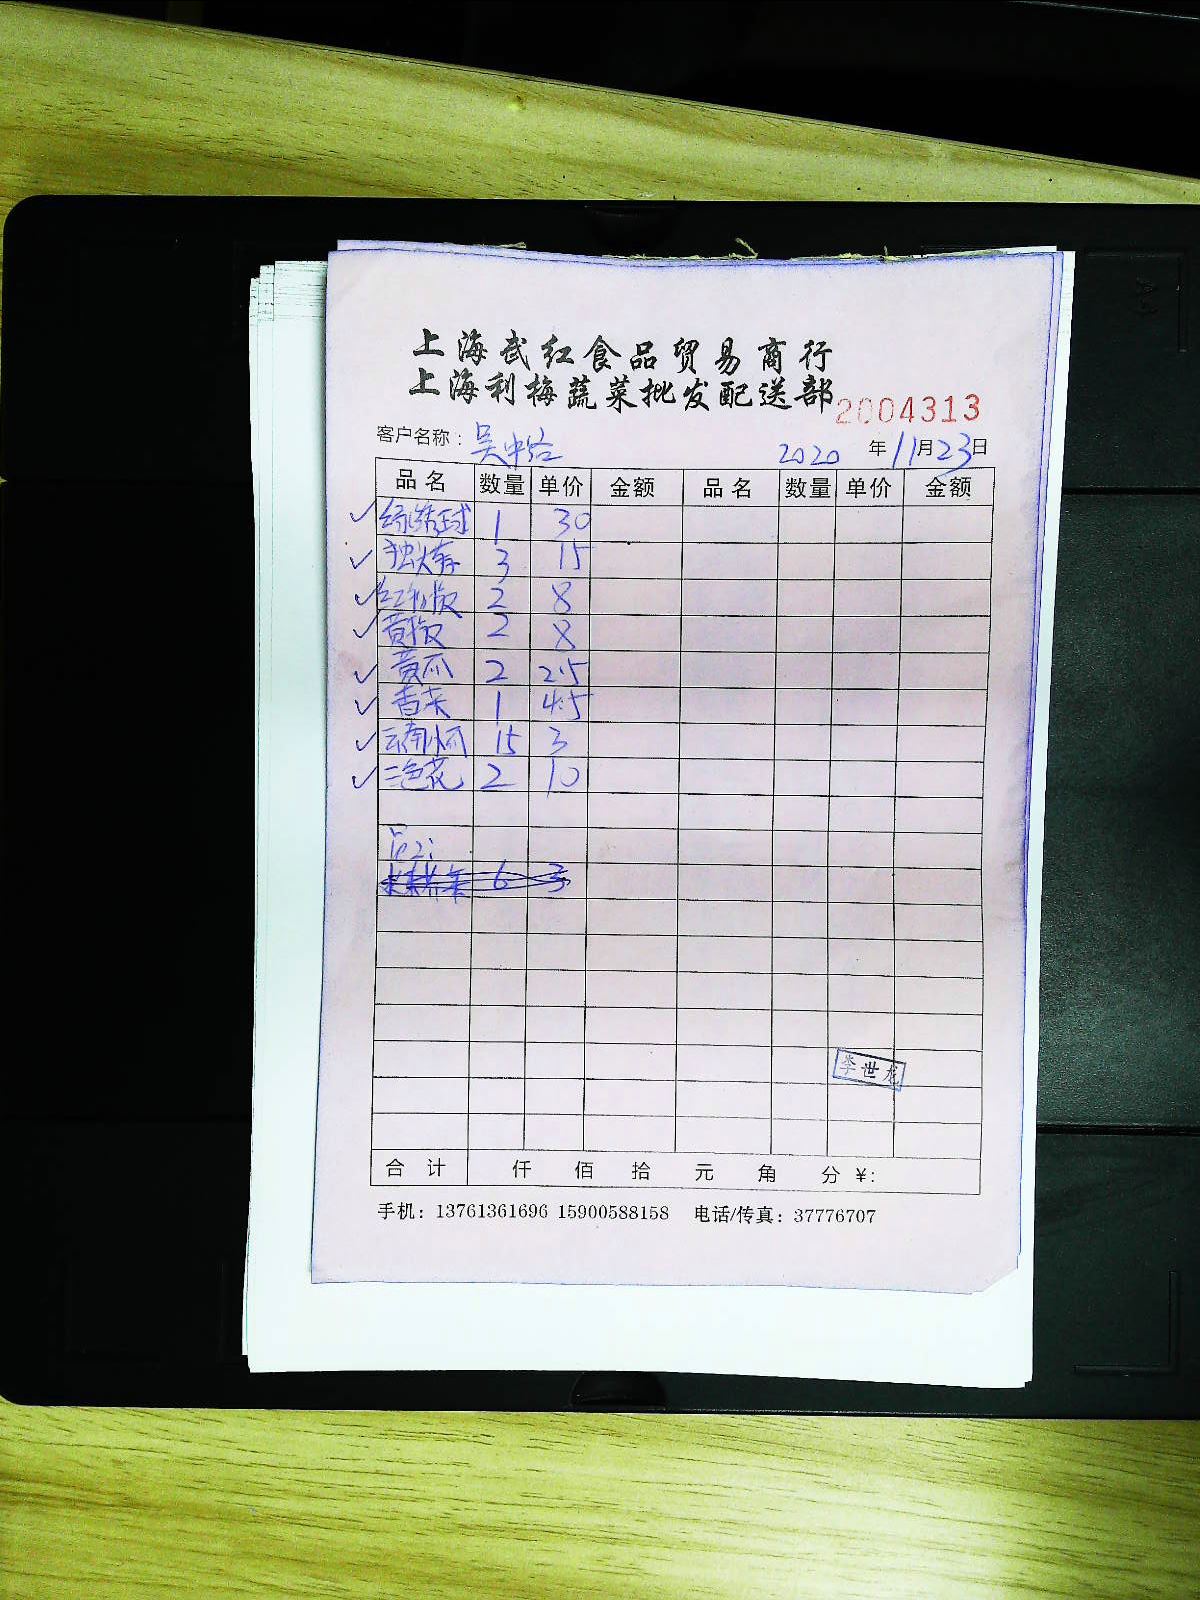 上海武红食品贸易商行
上海利梅蔬菜批发配送部
2004313
客户名称：吴中路 2020 年 11 月 23 日
品名 数量 单价 金额 品名 数量 单价 金额
1 30
独大蒜 3 15
红彩椒 2 8
黄椒 2 8
黄瓜 2 2.5
香菜 1 4.5
云南小瓜 15 3
三色花 2 10
6 3
李世龙
合计 仟 佰 拾 元 角 分 ¥:
手机：13761361696 15900588158 电话/传真：37776707